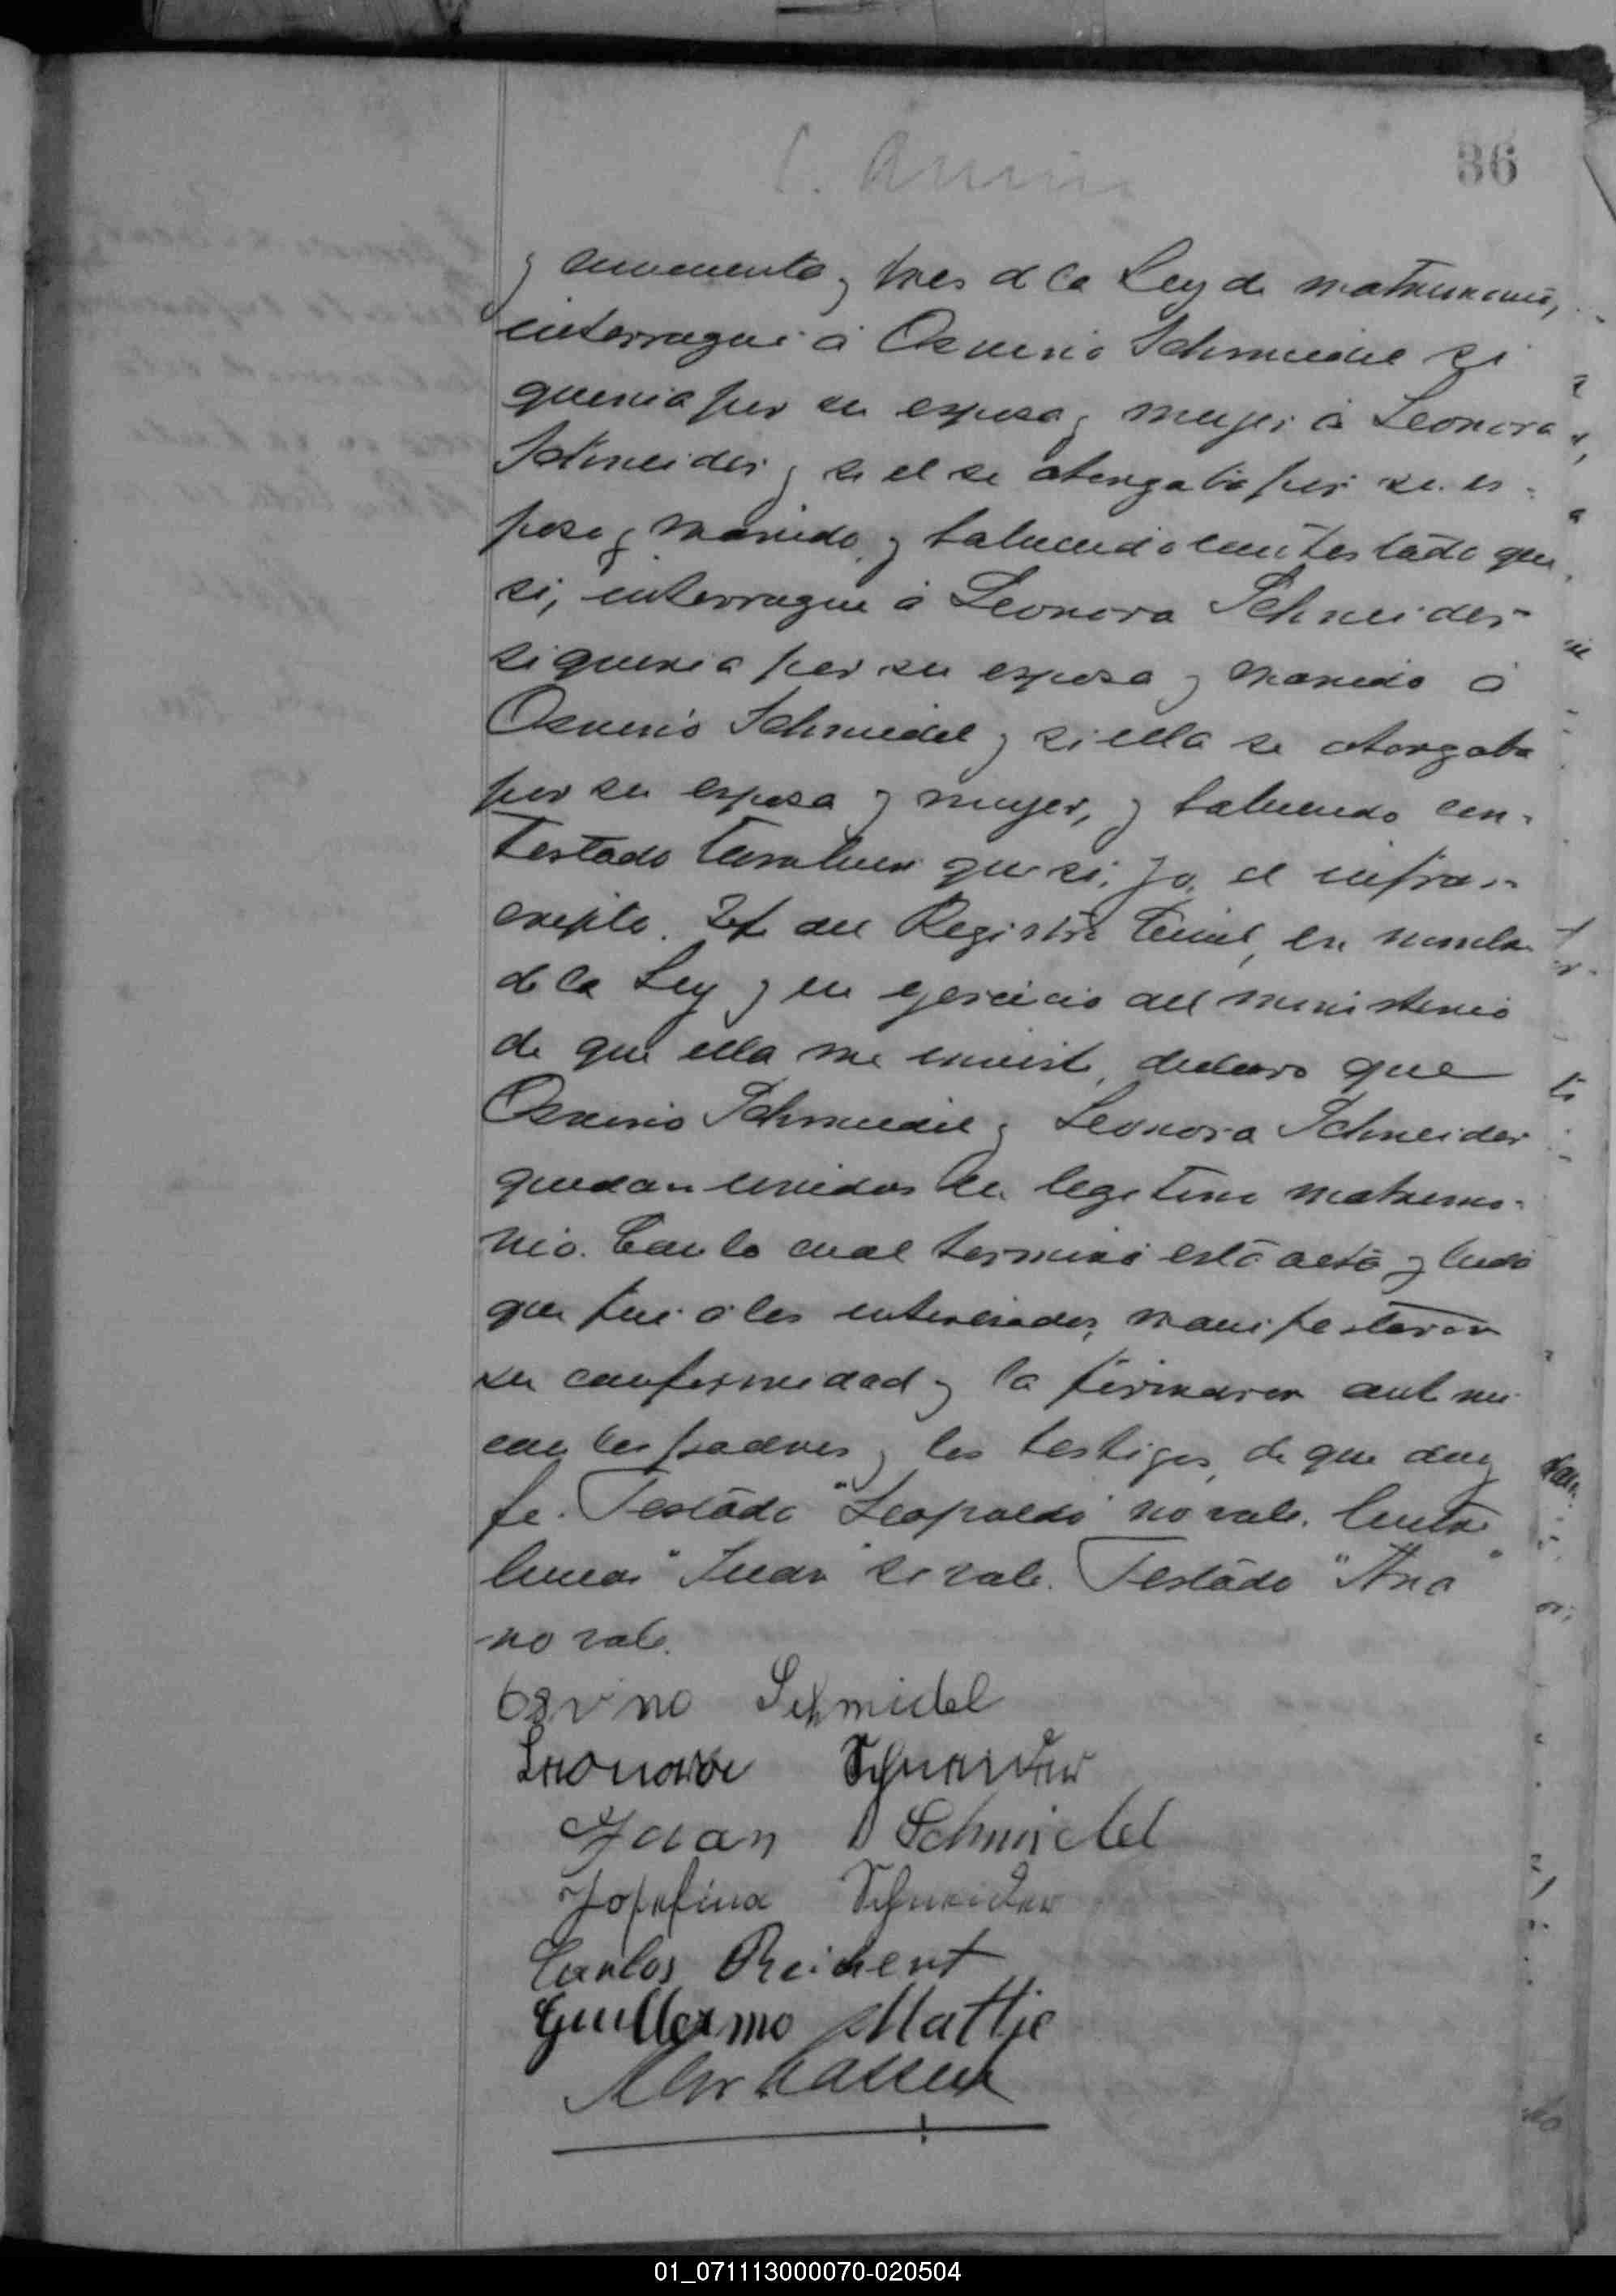 36
y cincuenta y tres de la Ley de matrimonio,
interrogué á Osvino Schmiedel si
queria por su esposa y mujer á Leonora
Schneider y si el se otorgaba por su es-
poso y marido, y habiendo contestado que
si, interrogue á Leonora Schneider
si queria por su esposo y marido á
Osvino Schmiedel y si ella se otorgaba
por su esposa y mujer, y habiendo con-
testado tambien que si, yo, el infras-
cripto Jefe del Registro Civil, en nombre
de la Ley y en ejercicio del ministerio
de que ella me inviste, declaro que
Osvino Schmiedel y Leonora Schneider
quedan unidos en legitimo matrimo-
nio. Con lo cual terminó esta acta y leida
que fué á los interesados, manifestaron
su conformidad y la firmaron ante mi
con los padres y los testigos, de que doy
fe. Testado "Leopoldo" no vale. Entre
lineas "Juan" si vale. Testado "Ana"
no vale.
Osvino Schmidel
Leonora Schneider
Juan Schmidel
Josefina Schneider
Carlos Reichert
Guillermo Mattje
01_071113000070-020504